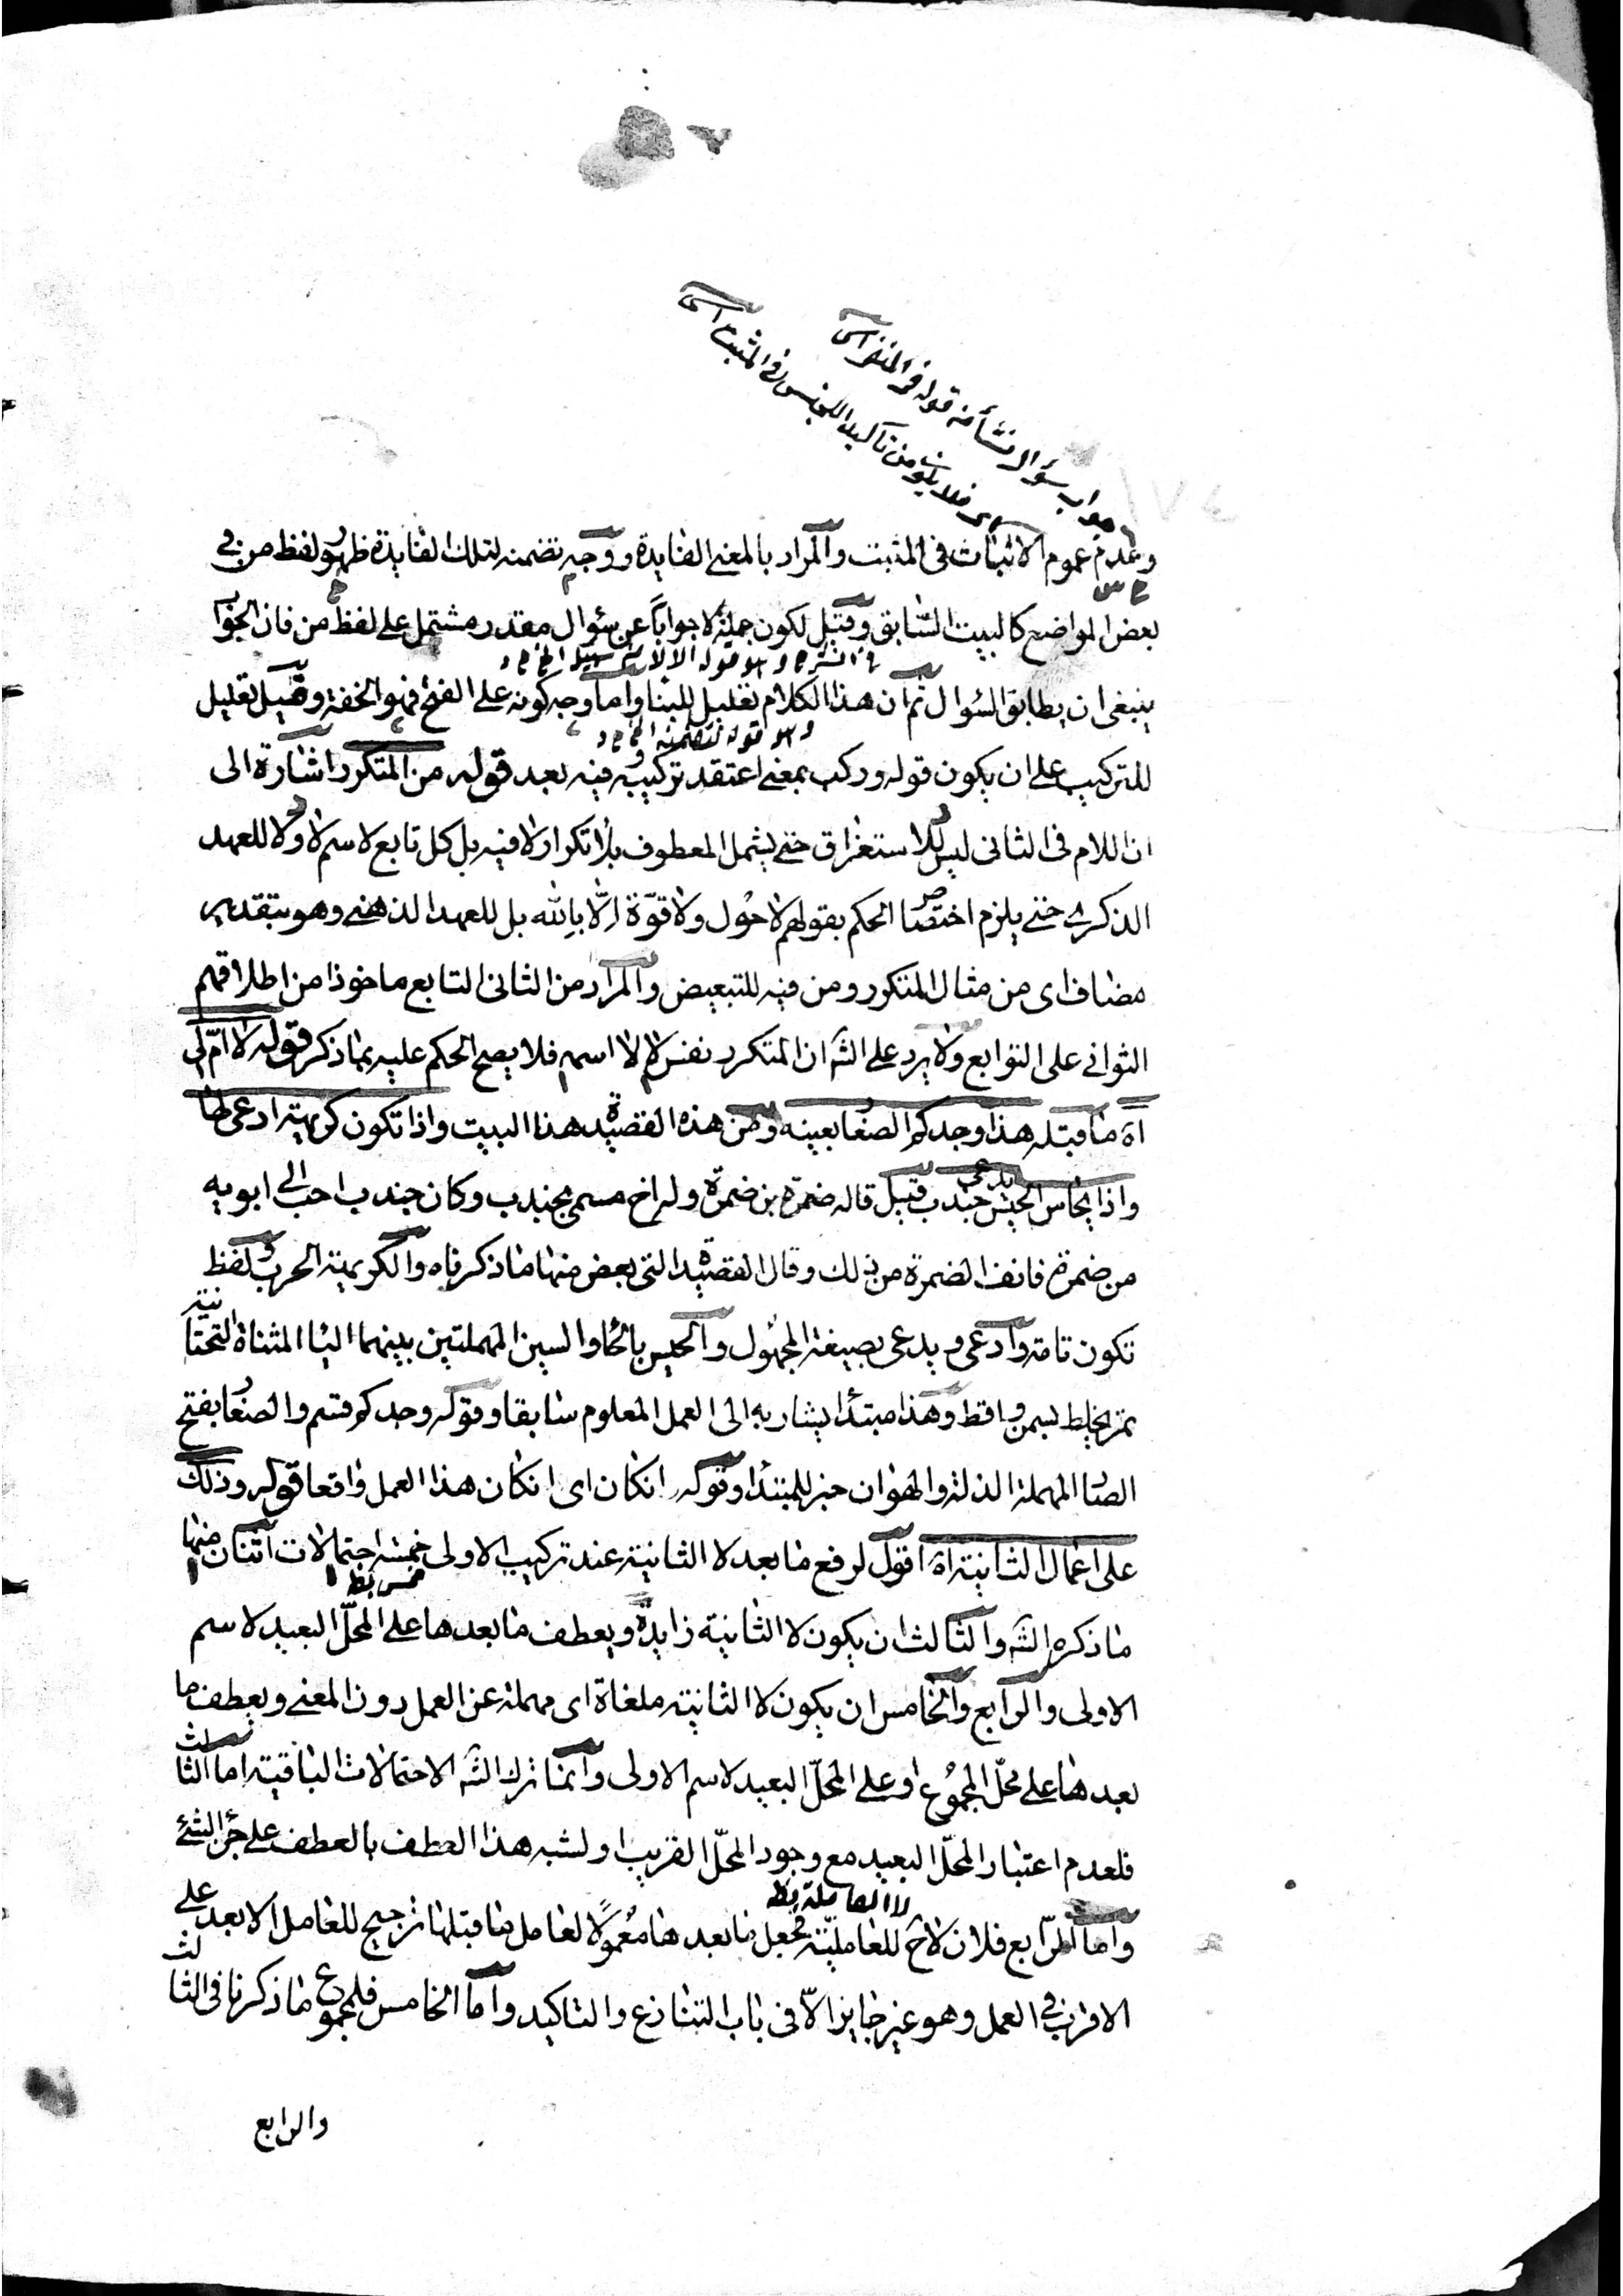 جواب سؤال نشأ من قوله في المنفي
فلا يكون من تأكيد الجنس في المثبت
وعدم عموم الاثبات فى المثبت والمراد بالمعنى الفايدة ووجه تضمنه لتلك الفايدة ظهور لفظ من فى
بعض المواضع كالبيت السّابق وقيل لكون جملة لا جواباً عن سؤال مقدر مشتمل على لفظ من فان الجواب
فى الشرح وهو قوله الا لا من سبيل الخ
ينبغى ان يطابق السؤال ثم ان هذا الكلام تعليل للبنا واما وجه كونه على الفتح فهو الخفة وقيل تعليل
وهو قوله لتضمنه الخ
للتركيب على ان يكون قوله وركب بمعنى اعتقد تركيبه فيه بعد قوله من المتكرر اشارة الى
ان اللام فى الثانى ليس للاستغراق حتى يشمل المعطوف بلا تكرار لا فيه بل كل تابع لاسم لا ولا للعهد
الذكرى حتى يلزم اختصاص الحكم بقولهم لا حول ولا قوّة الّا بالله بل للعهد الذهنى وهو بتقدير
مضاف اى من مثال المتكرر ومن فيه للتبعيض والمراد من الثانى التابع ماخوذا من اطلاقهم
الثوانى على التوابع ولا يرد على الشه ان المتكرر نفس لا لا اسمه فلا يصح الحكم عليه بما ذكر قوله لا امّ لى
آه ما قبله هذا وجدكم الصغار بعينه ومن هذه القصيدة هذا البيت واذا تكون كريهة ادعى لها
واذا يحاس الحيس يدعى جندب قيل قاله ضمرة بن ضمرة وله اخ مسمى بجندب وكان جندب احب الى ابويه
من ضمرة فانف الضمرة من ذلك وقال القصيدة التى بعض منها ما ذكرناه والكريهة الحرب ولفظ
تكون تامة وادعى ويدعى بصيغة المجهول والحيس بالحا والسين المهملتين بينهما اليا المثناة التحتانية
تمر يخلط بسمن واقط وهذا مبتدأ يشار به الى العمل المعلوم سابقا وقوله وجدكم قسم والصغار بفتح
الصا المهملة الذلة والهوان خبر للمبتدأ وقوله انكان اى انكان هذا العمل واقعا قوله وذلك
على اعمال الثانية آه اقول لرفع ما بعد لا الثانية عند تركيب الاولى خمسة احتمالات اثنان منها
خمس بط
ما ذكره الشه والثالث ان يكون لا الثانية زايدة ويعطف ما بعدها على المحلّ البعيد لاسم
الاولى والرابع والخامس ان يكون لا الثانية ملغاة اى مهملة عن العمل دون المعنى ويعطف ما
بعدها على محلّ المجموع او على المحلّ البعيد لاسم الاولى وانما ترك الشه الاحتمالات الباقية اما الثالث
فلعدم اعتبار المحلّ البعيد مع وجود المحلّ القريب او لشبه هذا العطف بالعطف على جزء الشئ
لا العاملة بط
واما الرّابع فلان لاح للعامليّة فجعل ما بعدها معمولًا لعامل ما قبلها ترجيح للعامل الابعد على
الاقرب فى العمل وهو غير جايز الاّ فى باب التنازع والتاكيد واما الخامس فلمجموع ما ذكرنا فى الثالث
والرابع